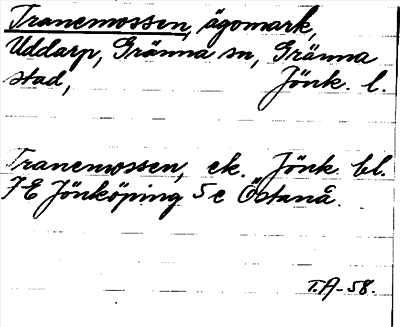 Tranemossen, ägomark,
Uddarp, Gränna sn, Gränna
stad, Jönk. l.
Tranemossen, ek. Jönk bl.
7E Jönköping 5 e Östanå.
T.A-58.